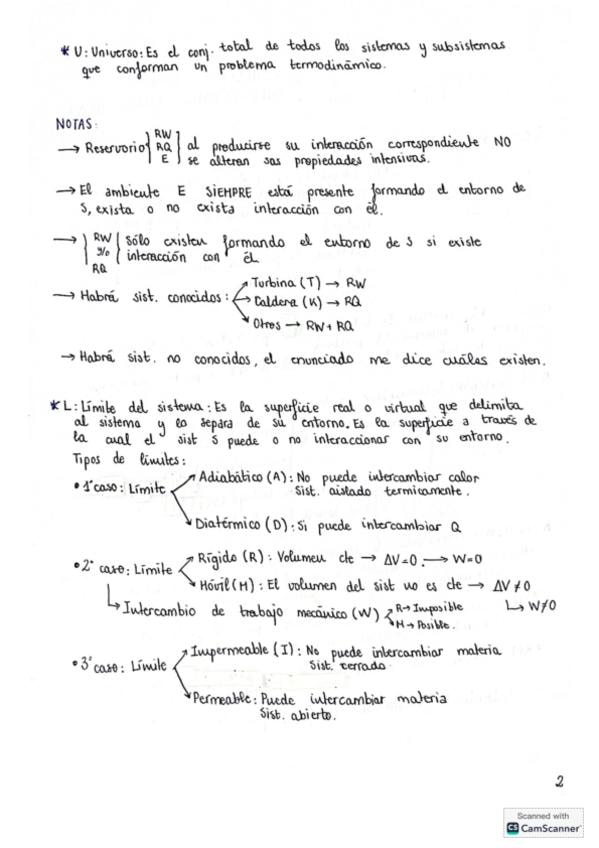 * U: Universo: Es el conj. total de todos los sistemas y subsistemas
que conforman un problema termodinámico.
NOTAS:
→ Reservorio } RW RQ E } al producirse su interacción correspondiente NO
se alteran sas propiedades intensivas.
→ El ambiente E SIEMPRE está presente formando el entorno de
S, exista o no exista interacción con él.
→ } RW y/o RQ { Sólo existen formando el entorno de S si existe
interacción con él
→ Habrá sist. conocidos: Turbina (T) → RW
Caldera (K) → RQ
Otros → RW + RQ
→ Habrá sist. no conocidos, el enunciado me dice cuáles existen.
* L: Límite del sistema: Es la superficie real o virtual que delimita
al sistema y lo separa de su entorno. Es la superficie a través de
la cual el sist S puede o no interaccionar con su entorno.
Tipos de límites:
• 1º caso: Límite Adiabático (A): No puede intercambiar calor
Sist. aislado termicamente.
Diatérmico (D): Si puede intercambiar Q
• 2º caso: Límite Rígido (R): Volumen cte → ΔV=0. → W=0
Móvil (M): El volumen del sist no es cte → ΔV≠0
↳ W≠0
↳ Intercambio de trabajo mecánico (W) R→ Imposible
M → Posible.
• 3º caso: Límite Impermeable (I): No puede intercambiar materia
Sist. cerrado
Permeable: Puede intercambiar materia
Sist. abierto.
2
Scanned with
CS CamScanner